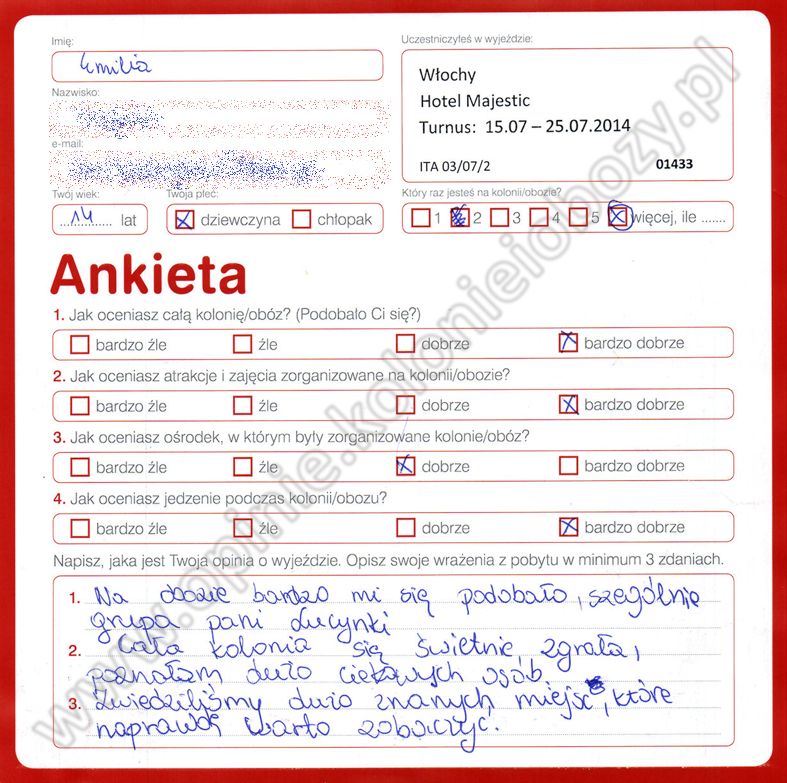 Imię:
Emilia
Nazwisko:
e-mail:
Twój wiek:
14 lat
Twoja płeć:
dziewczyna chłopak
Uczestniczyłeś w wyjeździe:
Włochy
Hotel Majestic
Turnus: 15.07 – 25.07.2014
ITA 03/07/2 01433
Który raz jesteś na kolonii/obozie?
1 2 3 4 5 więcej, ile .......
Ankieta
1. Jak oceniasz całą kolonię/obóz? (Podobało Ci się?)
bardzo źle źle dobrze bardzo dobrze
2. Jak oceniasz atrakcje i zajęcia zorganizowane na kolonii/obozie?
bardzo źle źle dobrze bardzo dobrze
3. Jak oceniasz ośrodek, w którym były zorganizowane kolonie/obóz?
bardzo źle źle dobrze bardzo dobrze
4. Jak oceniasz jedzenie podczas kolonii/obozu?
bardzo źle źle dobrze bardzo dobrze
Napisz, jaka jest Twoja opinia o wyjeździe. Opisz swoje wrażenia z pobytu w minimum 3 zdaniach.
1. Na obozie bardzo mi się podobało, szególnie
grupa pani Lucynki
2. Cała kolonia się świetnie zgrała,
poznałam dużo ciekawych osób
3. Zwiedziliśmy dużo znanych miejsc, które
naprawdę warto zobaczyć.
www.opinie.kolonieiobozy.pl